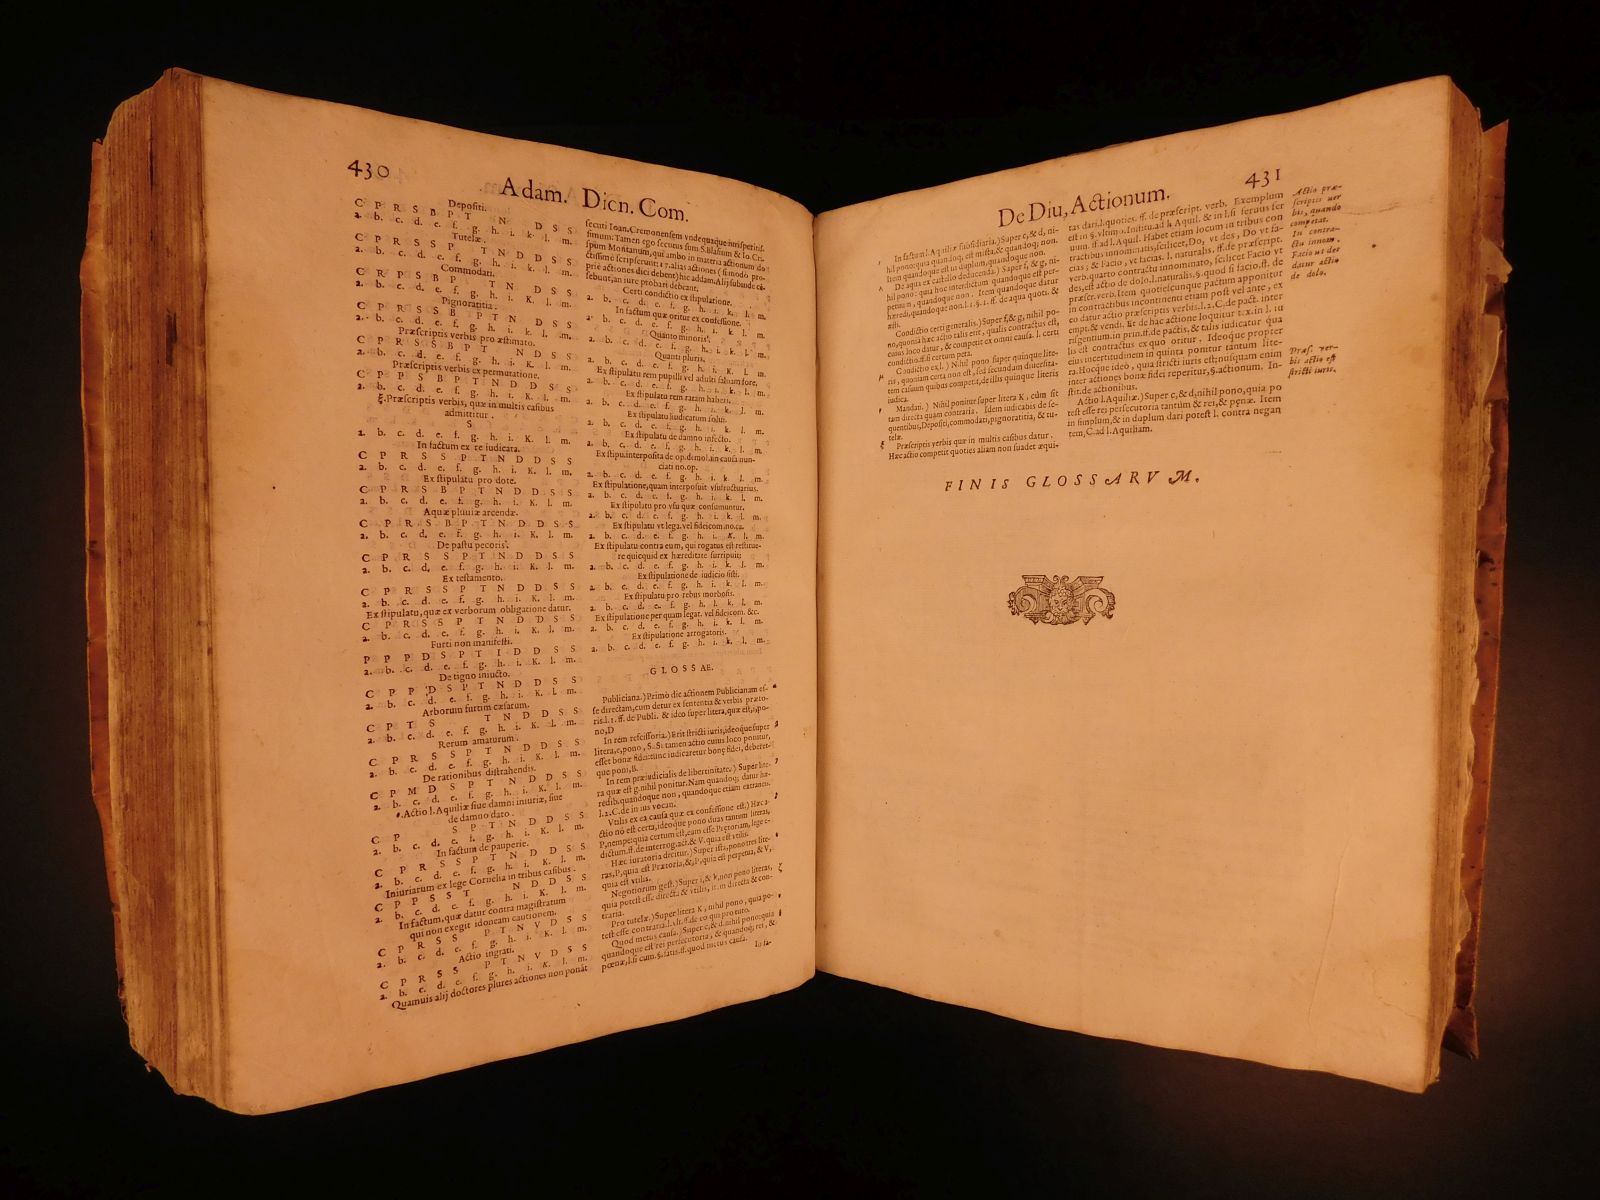 430
Adam. Dicn. Com.
Depositi.
C P R S B P T N D S S
a. b. c. d. e. f. g. h. i. k. l. m.
Tutelæ.
C P R S S P T N D D S S
a. b. c. d. e. f. g. h. i. k. l. m.
Commodati.
C R P S B P T N D D S S
a. b. c. d. e. f. g. h. i. K. l. m.
Pignoratitia.
C P R S S B P T N D S S
a. b. c. d. e. f. g. h. i. k. l. m.
Præscriptis verbis pro æstimato.
C P R S S B P T N D D S S
a. b. c. d. e. f. g. h. i. k. l. m.
Præscriptis verbis ex permutatione.
C P P S B P T N D D D S S
a. b. c. d. e. f. g. h. i. k. l. m.
ξ.Præscriptis verbis, quæ in multis casibus
admittitur.
S
a. b. c. d. e. f. g. h. i. K. l. m.
In factum ex re iudicata.
C P R S S P T N D D S S
a. b. c. d. e. f. g. h. i. K. l. m.
Ex stipulatu pro dote.
C P R S B P T N D D S S
a. b. c. d. e. f. g. h. i. K. l. m.
Aquæ pluuiæ arcendæ.
C P R S B P T N D D S S
a. b. c. d. e. f. g. h. i. K. l. m.
De pastu pecoris.
C P R S S P T N D D S S
a. b. c. d. e. f. g. h. i. k. l. m.
Ex testamento.
C P R S S P T N D D S S
a. b. c. d. e. f. g. h. i. k. l. m.
Ex stipulatu, quæ ex verborum obligatione datur.
C P R S S P T N D D S S
a. b. c. d. e. f. g. h. i. K. l. m.
Furti non manifesti.
P P P D S P T I D D S S
a. b. c. d. e. f. g. h. i. K. l. m.
De tigno iniucto.
C P P D S P T N D D S S
a. b. c. d. e. f. g. h. i. K. l. m.
Arborum furtim cæsarum.
C P T S T N D D S S
a. b. c. d. e. f. g. h. i. K. l. m.
Rerum amaturum.
C P R S S P T N D D S S
a. b. c. d. e. f. g. h. i. k. l. m.
De rationibus distrahendis.
C P M D S P T N D D S S
a. b. c. d. e. f. g. h. i. K. l. m.
Actio l. Aquiliæ siue damni iniuriæ, siue
de damno dato.
C P S P T N D D S S
a. b. c. d. e. f. g. h. i. K. l. m.
In factum de pauperie.
C P R S S P T N D D S S
a. b. c. d. e. f. g. h. i. K. l. m.
Iniuriarum ex lege Cornelia in tribus casibus.
C P P S S T N D D S S
a. b. c. d. e. f. g. h. i. K. l. m.
In factum, quæ datur contra magistratum
qui non exegit idoneam cautionem.
C P R S S P T N V D S S
a. b. c. d. e. f. g. h. i. K. l. m.
Actio ingrati.
C P R S S P T N V D S S
a. b. c. d. e. f. g. h. i. K. l. m.
Quamuis alij doctores plures actiones non ponāt
secuti Ioan. Cremonensem vndequaque
simum: Tamen ego secutus sum S. Blasium & Io. Cri-
spum Montanum, qui ambo in materia actionum do-
ctissimè scripserunt: 17. alias actiones (si modo pro-
priè actiones dici debent) hic addam. Alij subinde
sebunt, an iure probari debeant.
Certi condictio ex stipulatione.
a. b. c. d. e. f. g. h. i. k. l. m.
In factum quæ oritur ex confessione.
a. b. c. d. e. f. g. h. i. k. l. m.
Quanto minoris.
a. b. c. d. e. f. g. h. i. k. l. m.
Quanti pluris.
a. b. c. d. e. f. g. h. i. K. l. m.
Ex stipulatu rem pupilli vel adulti saluam fore.
a. b. c. d. e. f. g. h. i. k. l. m.
Ex stipulatu rem ratam haberi.
a. b. c. d. e. f. g. h. i. k. l. m.
Ex stipulatu iudicatum solui.
a. b. c. d. e. f. g. h. i. k. l. m.
Ex stipulatu de damno infecto.
a. b. c. d. e. f. g. h. i. k. l. m.
Ex stipu. interposita de op. demol. ain causa nun-
ciati no. op.
a. b. c. d. e. f. g. h. i. K. l. m.
Ex stipulatione, quam interposuit vsufructuarius.
a. b. c. d. e. f. g. h. i. K. l. m.
Ex stipulatu pro vsu quæ consumuntur.
a. b. c. d. e. f. g. h. i. k. l. m.
Ex stipulatu vt lega. vel fideicom. no. ca.
a. b. c. d. e. f. g. h. i. K. l. m.
Ex stipulatu contra eum, qui rogatus est restitue-
re quicquid ex hæreditate surripuit;
a. b. c. d. e. f. g. h. i. k. l. m.
Ex stipulatione de iudicio sisti.
a. b. c. d. e. f. g. h. i. k. l. m.
Ex stipulatu pro rebus morbosis.
a. b. c. d. e. f. g. h. i. k. l. m.
Ex stipulatione per quam legat. vel fideicom. &c.
a. b. c. d. e. f. g. h. i. k. l. m.
Ex stipulatione arrogatoris.
a. b. c. d. e. f. g. h. i. k. l. m.
GLOSSAE.
Publiciana.) Primò dic actionem Publicianam es-
se directam, cum detur ex sententia & verbis præto-
ris. l. 1. ff. de Publi. & ideo super litera, quæ est, i, po-
no, D
In rem rescissoria.) Erit stricti iuris, ideoque super
litera, e, pono, S. Si tamen actio cuius loco ponitur,
esset bonæ fidei: tunc iudicaretur bonę fidei, deberet-
que poni, B.
In rem præiudicialis de libertinitate.) Super lite-
ra quæ est g. nihil ponitur. Nam quandoq; datur hæ-
redib. quandoque non, quandoque etiam extraneis.
l. 2. C. de in ius vocan.
Vtilis ex ea causa quæ ex confessione est.) Hæc a-
ctio nō est certa, ideoque pono duas tantum literas,
P, nempe: quia certum est, eam esse Prætoriam, lege e-
dictum. ff. de interrog. act. & V. quia est vtilis.
Hæc iuratoria dicitur.) Super ista, pono tres lite-
ras, P, quia est Prætoria, &, P, quia est perpetua, & V,
quia est vtilis.
Negotiorum gest.) Super i, & k, non pono literas,
quia potest esse directa & vtilis, item directa & con-
traria.
Pro tutelæ.) Super litera K, nihil pono, quia po-
test esse contraria. l. 1. ff. de eo qui pro tuto.
Quod metus causa.) Super c, & d, nihil pono; quia
quandoque est rei persecutoria, & quandoq; rei, &
pœnæ, l. si cum. §. satis. ff. quod metus causa.
In fa-
De Diu, Actionum.
431
In factum l. Aquiliæ subsidiaria.) Super c, & d, ni-
hil pono: quia quandoq; est mista, & quandoq; non.
Item quandoque est in duplum, quandoque non.
De aqua ex castello deducenda.) Super f, & g, ni-
hil pono: quia hoc interdictum quandoque est per-
petuum, quandoque non. Item quandoque datur
hæredi, quandoque non. l. 1. §. 1. ff. de aqua quoti. &
æsti.
Condictio certi generalis.) Super f, & g, nihil po-
no, quoniā hæc actio talis erit, qualis contractus est,
cuius loco datur, & competit ex omni causa. l. certi
condictio. ff. si certum peta.
Condictio ex l.) Nihil pono super quinque lite-
ris, quoniam certa non est, sed secundum diuersita-
tem casuum quibus competit, de illis quinque literis
iudica.
Mandati.) Nihil ponitur super litera K, cùm sit
tam directa quàm contraria. Idem iudicabis de se-
quentibus, Depositi, commodati, pignoratitia, & tu-
telæ.
Præscriptis verbis quæ in multis casibus datur.
Hæc actio competit quoties aliam non suadet æqui-
tas dari, l. quoties. ff. de præscript. verb. Exemplum
est in §. vltimo. Institu. ad l. Aquil. & in l. si seruus ser
uum. ff. ad l. Aquil. Habet etiam locum in tribus con
tractibus innominatis, scilicet, Do, vt des, Do vt fa-
cias; & Facio, vt facias. l. naturalis. ff. de præscript.
verb. quarto contractu innominato, scilicet Facio vt
des, est actio de dolo. l. naturalis. §. quod si facio. ff. de
præscr. verb. Item quotiescunque pactum apponitur
in contractibus incontinenti etiam post vel ante, ex
eo datur actio præscriptis verbis. l. 2. C. de pact. inter
empt. & vendi. Et de hac actione loquitur tex. in l. iu
risgentium. in prin. ff. de pactis, & talis iudicatur quā
lis est contractus ex quo oritur. Ideoque propter
eius incertitudinem in quinta ponitur tantùm lite-
ra. Hocque ideò, quia stricti iuris est; nonsquam enim
inter actiones bonæ fidei reperitur, §. actionum. In-
stit. de actionibus.
Actio l. Aquiliæ.) Super c, & d, nihil pono, quia po
test esse rei persecutoria tantùm & rei, & pęnæ. Item
in simplum, & in duplum dari potest l. contra negan
tem, C. ad l. Aquiliam.
Actio præ-
scriptis ver
bis, quando
competat.
In contra-
ctu innom.
Facio ut des
datur actio
de dolo.
Præs. ver-
bis actio est
stricti iuris.
FINIS GLOSSARVM.